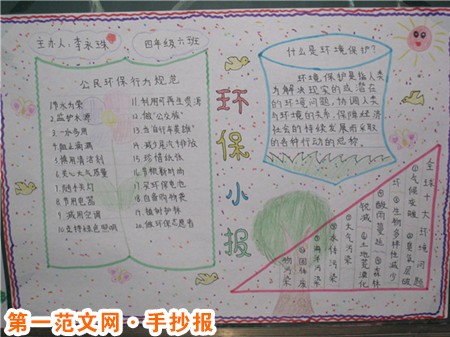 主办人：李永珠 四年级六班
公民环保行为规范
1.节水为荣
2.监护水源
3.一水多用
4.阻止滴漏
5.慎用清洁剂
6.关心大气质量
7.随手关灯
8.节用电器
9.减用空调
10.支持绿色照明
11.利用可再生资源
12.做“公交族”
13.当“自行车英雄”
14.减少尾气排放
15.珍惜纸张
17.买环保电池
18.自备购物袋
19.植树护林
20.做环保志愿者
环保小报
什么是环境保护？
环境保护是指人类
为解决现实的或潜在
的环境问题，协调人类
与环境的关系，保障经济
社会的持续发展而采取
的各种行动的总称。
全球十大环境问题
①气候变暖 ②臭氧层破
坏 ③生物多样性减少
④酸雨蔓延 ⑤森林
锐减 ⑥土地荒漠化
⑦大气污染
⑧水体污染
⑨海洋污染
⑩固体废
物污染
第一范文网·手抄报